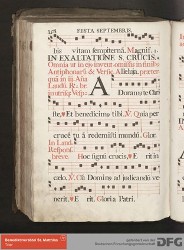 FESTA SEPTEMBRIS.
bis vitam sempiternã. Magnif.
IN EXALTATIONE S. CRUCIS.
Omnia ut in ejus invent. omissis in fine
Antiphonarũ & Versic. Alleluia, præter
quã in iii. Añã
Laud. R. br.
Vesp.
ADoramus te Chri
ste, Et benedicimus tibi. V. Quia per
crucẽ tuã redemisti mundũ. Glor.
In Laud.
Resp.
breve. Hoc signũ crucis, Erit in
celo. V. Cũ Dominus ad judicandũ ve
nerit. Erit. Gloria Patri.
DFG